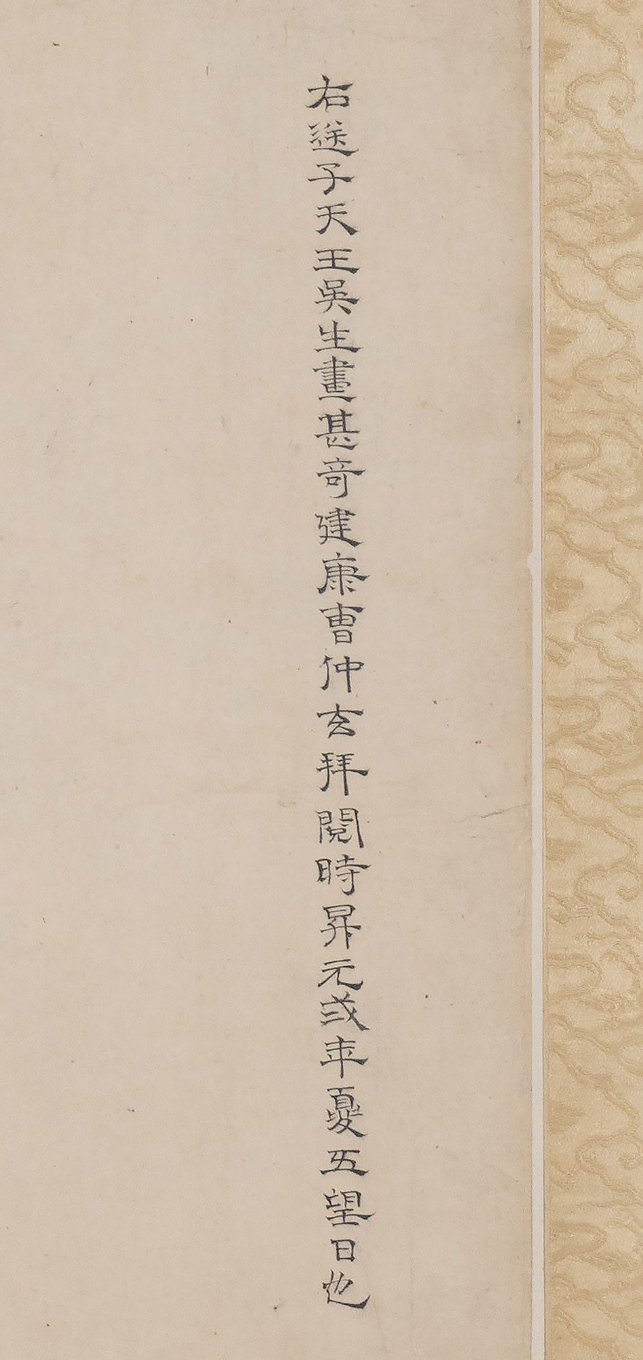 右送子天王吳生畫甚奇建康曹仲玄拜閱時昇元弍年夏五望日也